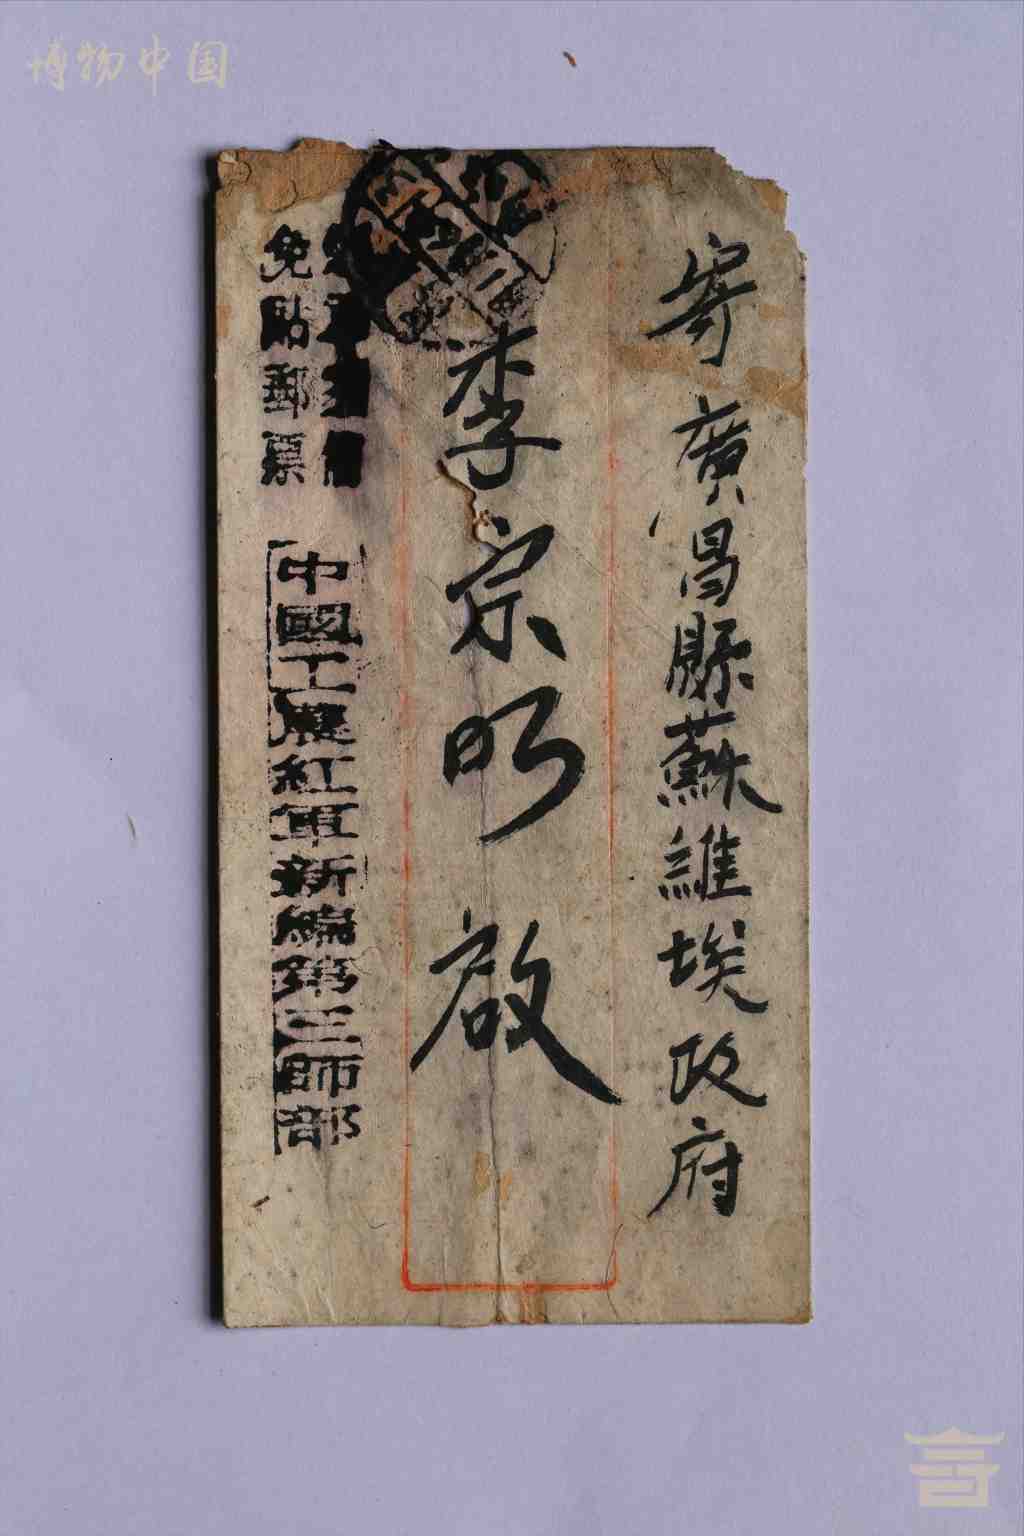 博物中国
寄廣昌縣蘇維埃政府
李宗明啟
免貼郵票
中國工農紅軍新編第三師部